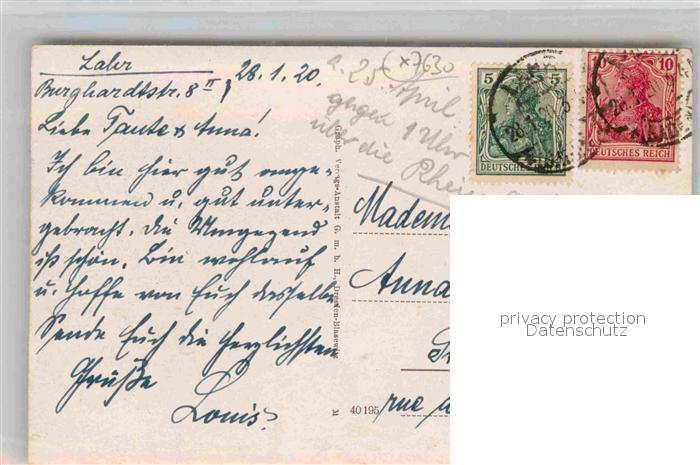 Lahr
Burghardtstr. 8 II
28.1.20.
Liebe Tante & Anna!
Ich bin hier gut ange-
kommen u. gut unter-
gebracht. Die Umgegend
ist schön. Bin wohlauf
u. hoffe von Euch dasselbe
Sende Euch die herzlichsten
Grüße
Louis.
(x7630
a. 25
April
gegen 1 Uhr
über die Rhei
5 5
DEUTSCHES
10 10
DEUTSCHES REICH
Graph. Verlags-Anstalt G. m. b. H., Dresden-Blasewitz
M 40195
Madem
Anna
rue
privacy protection
Datenschutz